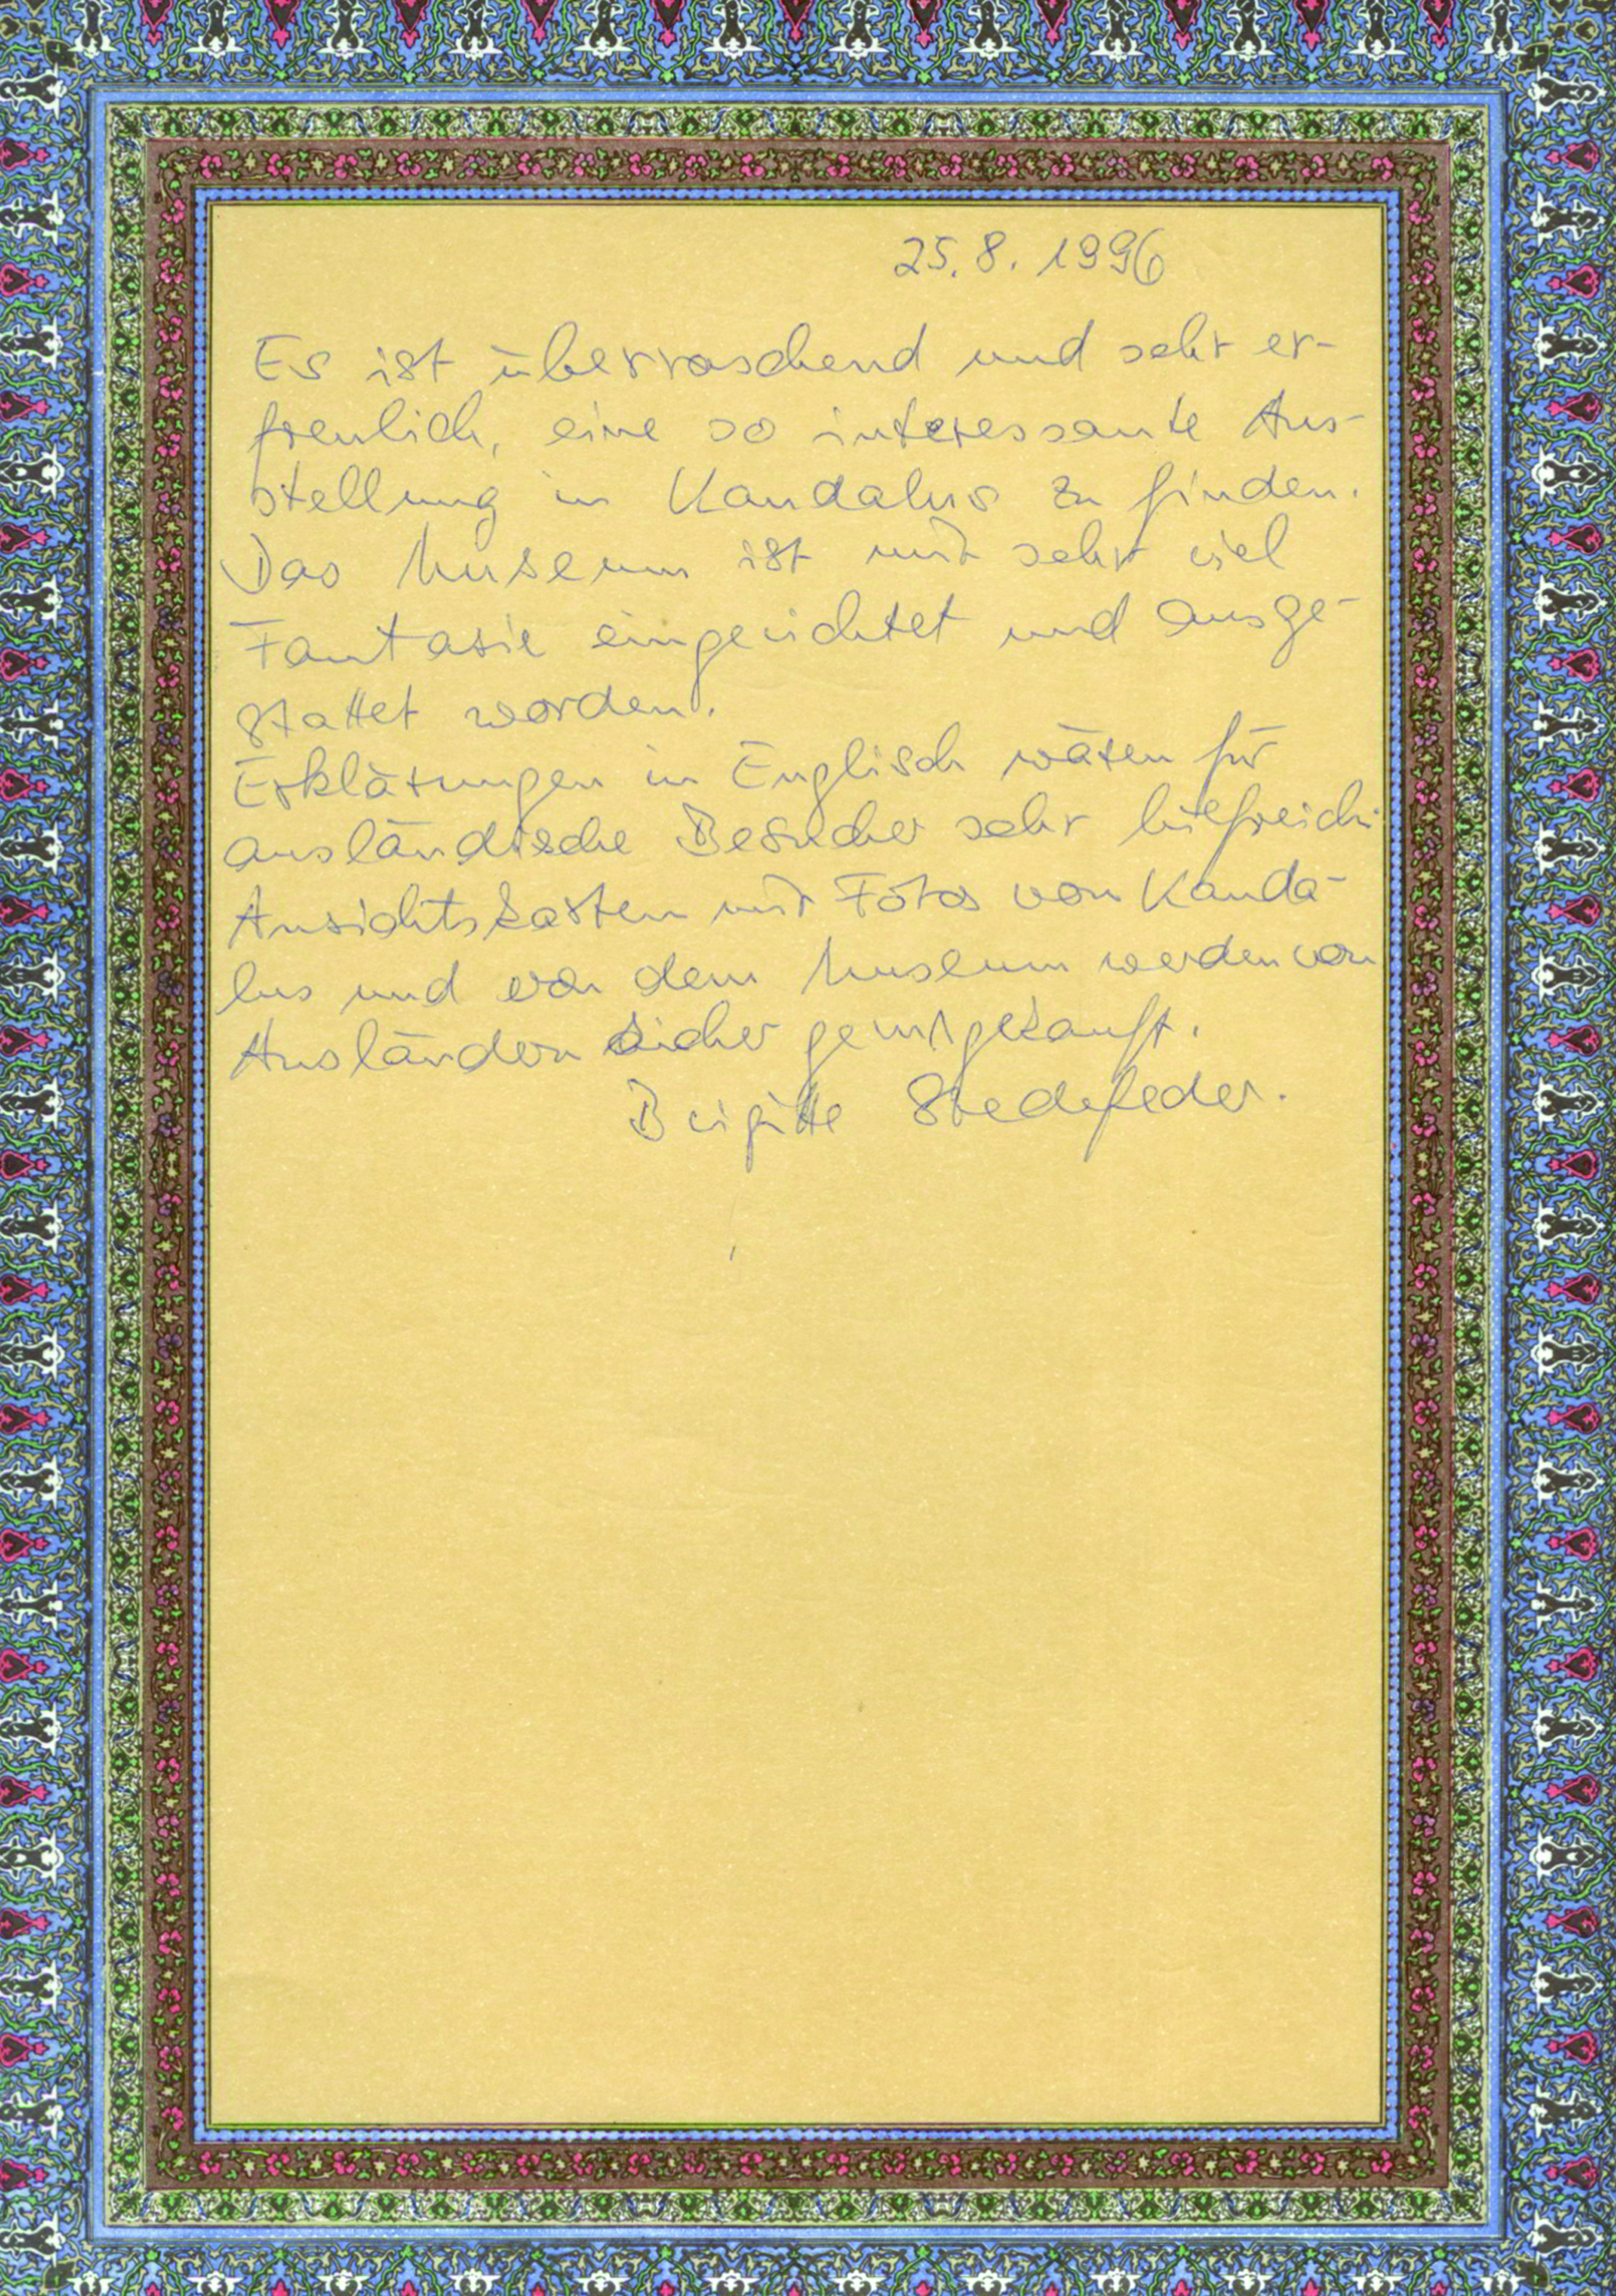 25.8.1996
Es ist überraschend und sehr er-
freulich, eine so interessante Aus-
stellung in Kandalus zu finden.
Das Museum ist mit sehr viel
Fantasie eingerichtet und ausge-
stattet worden.
Erklärungen in Englisch wären für
ausländische Besucher sehr hilfreich.
Ansichtskarten mit Fotos von Kanda-
lus und von dem Museum werden von
Ausländern sicher gern gekauft.
Brigitte